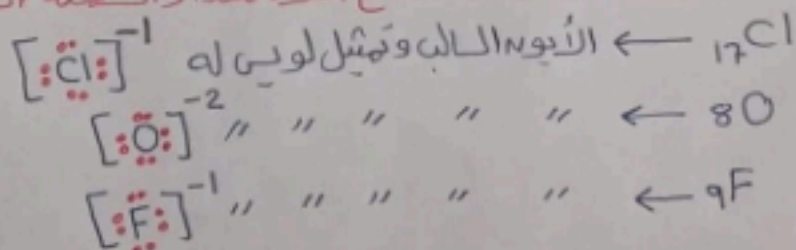 ₁₇Cl ← الأيون السالب وتمثيل لويس له [:Cl:]⁻¹
₈O ← // // // // // [:O:]⁻²
₉F ← // // // // // [:F:]⁻¹